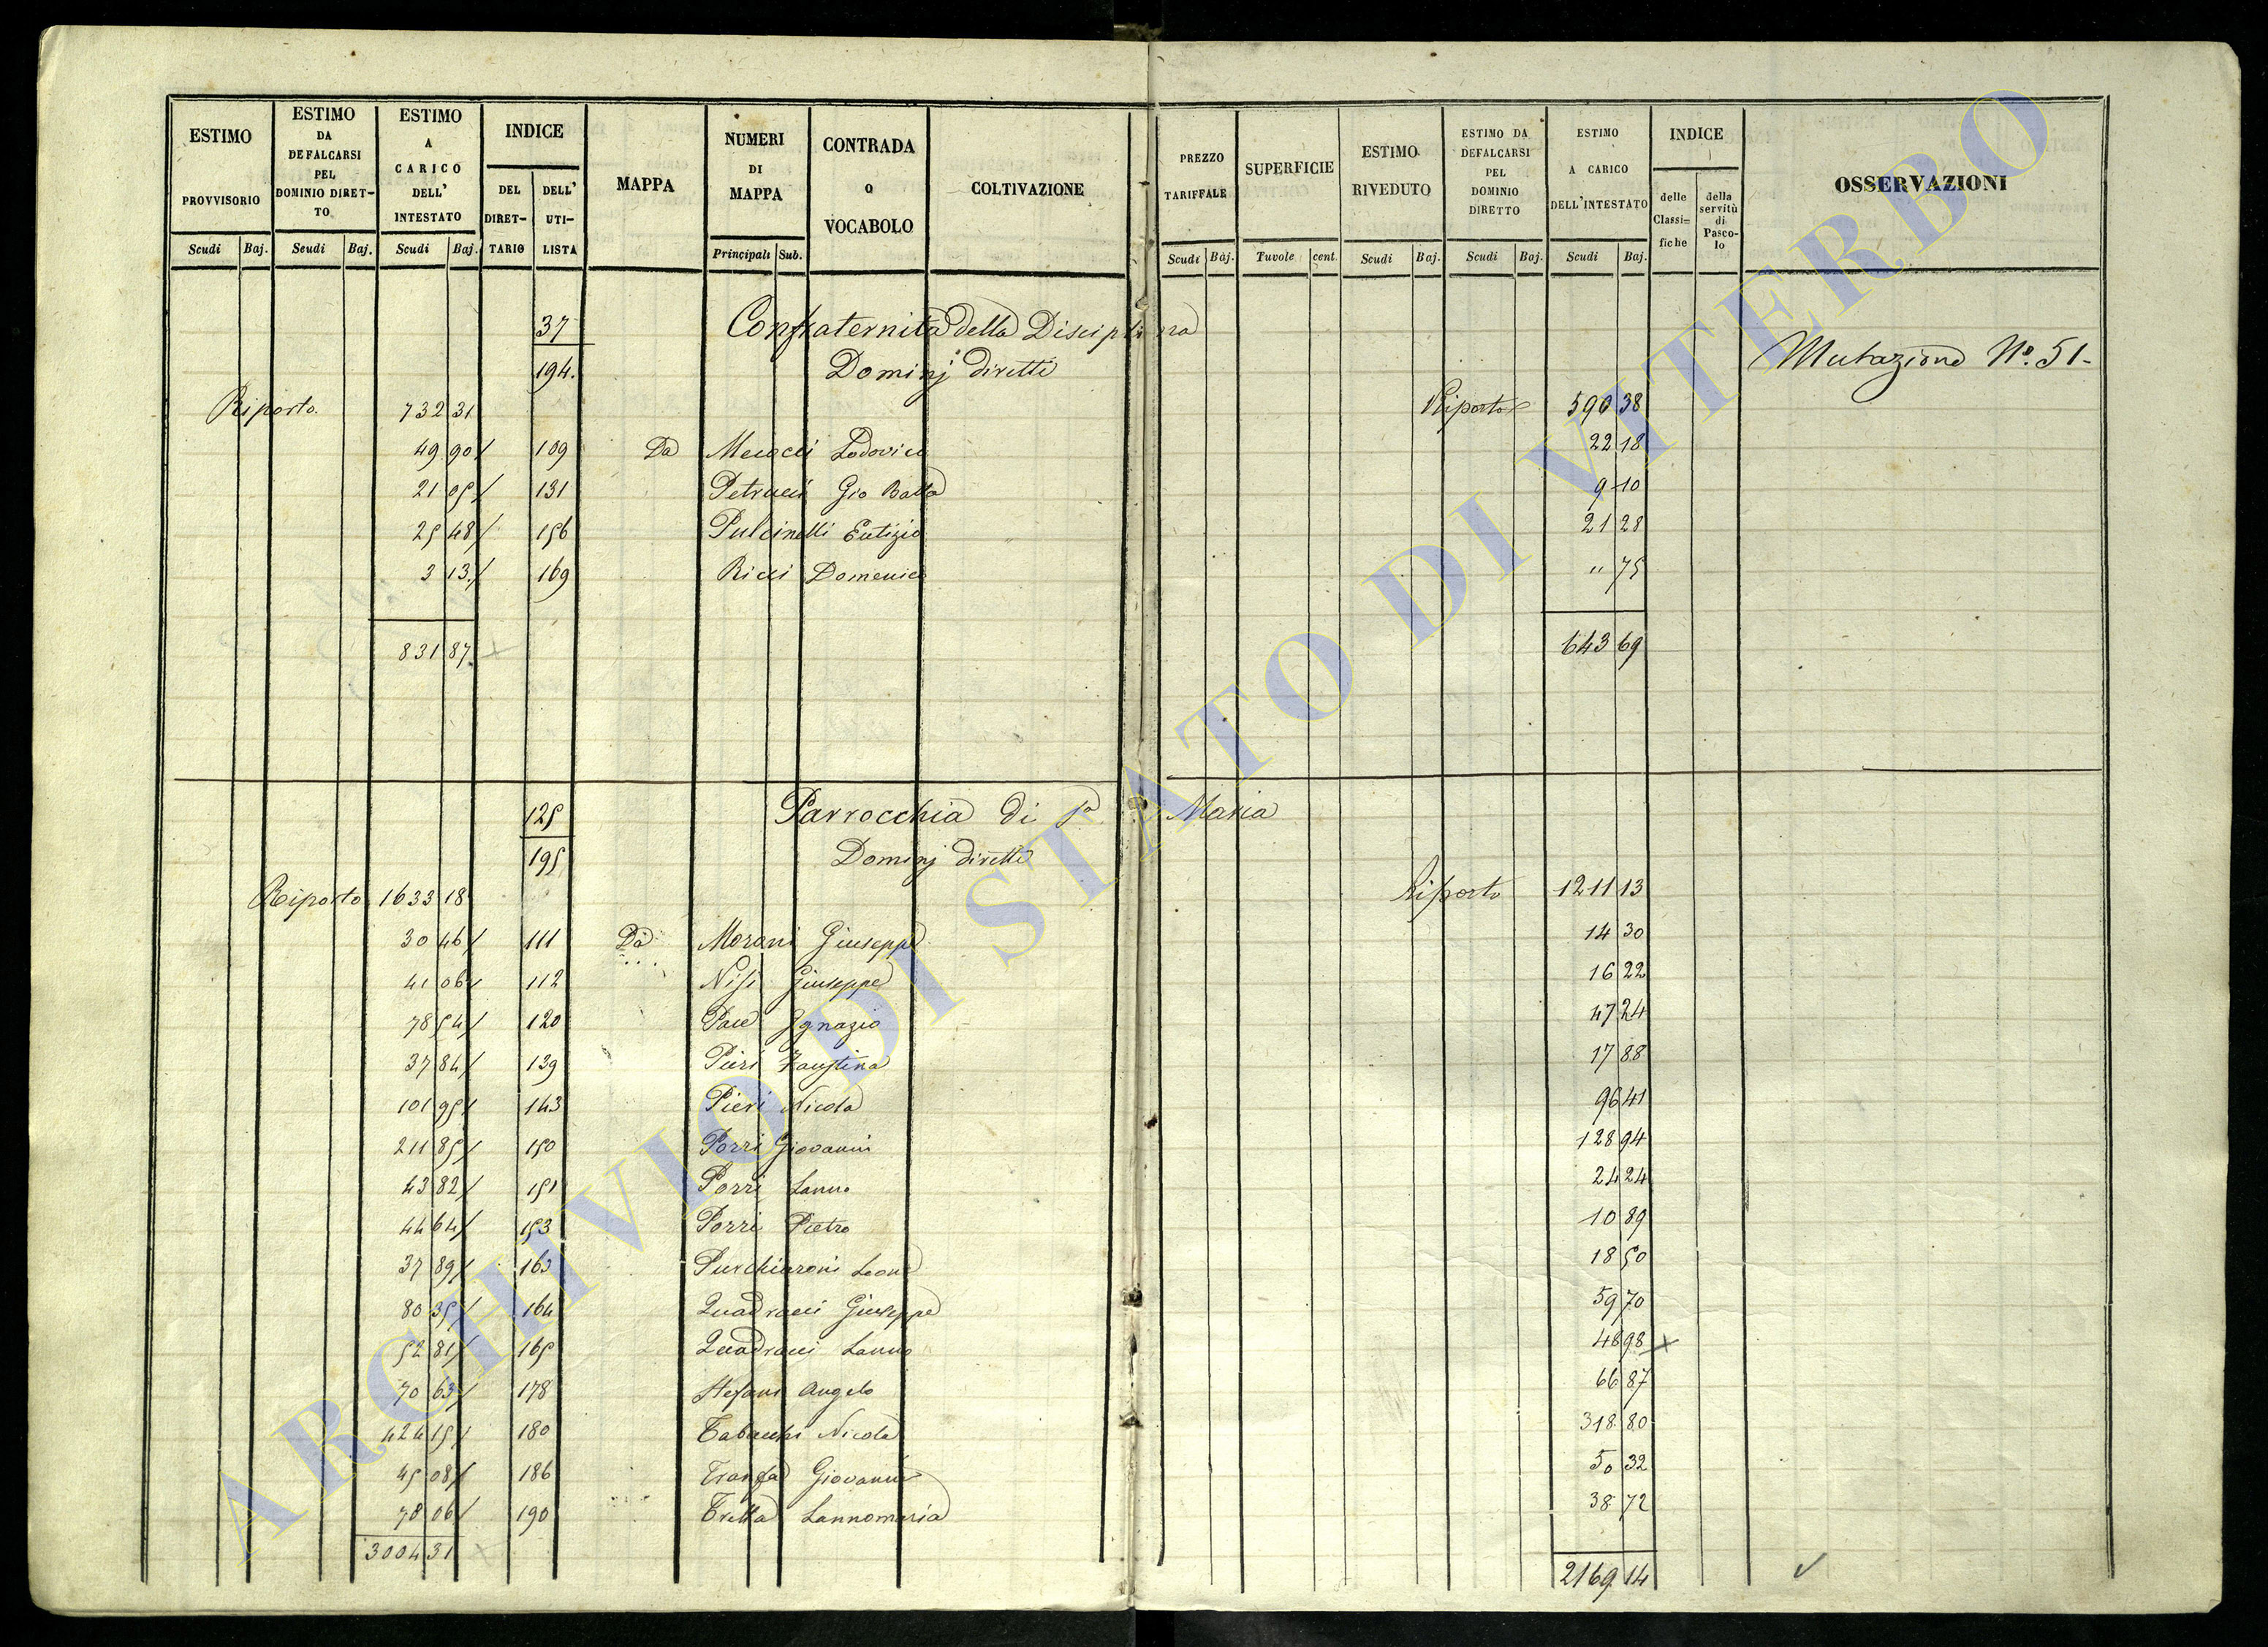 ESTIMO PROVVISORIO
ESTIMO DA DEFALCARSI PEL DOMINIO DIRET-TO
ESTIMO A CARICO DELL' INTESTATO
INDICE
DEL DIRET-TARIO
DELL' UTI-LISTA
MAPPA
NUMERI DI MAPPA
CONTRADA O VOCABOLO
COLTIVAZIONE
PREZZO TARIFFALE
SUPERFICIE
ESTIMO RIVEDUTO
ESTIMO DA DEFALCARSI PEL DOMINIO DIRETTO
ESTIMO A CARICO DELL'INTESTATO
INDICE
delle Classi=fiche
della servitù di Pasco-lo
OSSERVAZIONI
Scudi Baj. Scudi Baj. Scudi Baj. Principali Sub. Scudi Baj. Tavole cent. Scudi Baj. Scudi Baj. Scudi Baj.
37 Confraternita della Disciplina
194. Dominj diretti Mutazione Nº. 51-
Riporto. 732 31 Riporto 590 38
49 90 109 Da Mecocci Lodovico 22 18
21 05 131 Petrucci Gio Batta 9 10
25 48 156 Pulcinelli Eutizio 21 28
3 13 169 Ricci Domenico " 75
831 87 643 69
125 Parrocchia di Sa Maria
195 Dominj diretti
Riporto 1633 18 Riporto 1211 13
30 46 111 Da Morani Giuseppe 14 30
41 06 112 Nisi Giuseppe 16 22
78 54 120 Pace Ignazio 47 24
37 84 139 Pieri Faustina 17 88
101 95 143 Pieri Nicola 96 41
211 85 150 Porri Giovanni 128 94
43 82 151 Porri 24 24
44 64 153 Porri Pietro 10 89
37 89 163 Purchiaroni Leone 18 50
80 35 164 Quadracci Giuseppe 59 70
52 81 165 Quadracci 48 98
70 63 178 Stefani Angelo 66 87
424 15 180 Tabacchi Nicola 318 80
45 08 186 Giovanni 50 32
78 06 190 Tretta 38 72
3004 31 2169 14
ARCHIVIO DI STATO DI VITERBO